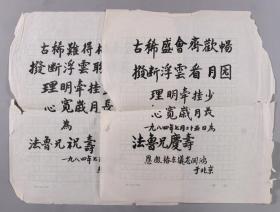 古稀難得
撥斷浮雲
理明牽挂
心寬歲月長
為
法魯兄祝壽
一九八四年七月
古稀盛會齊歡暢
撥斷浮雲看月园
理明牽挂少
心寬歲月長
一九八四年七月廿五日為
法魯兄慶壽
于北京